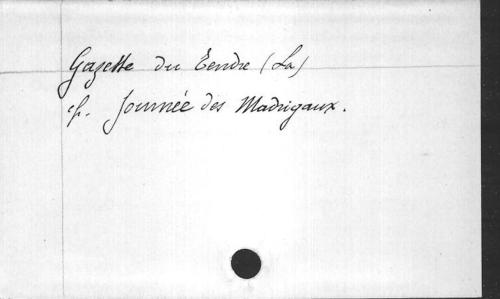 Gazette du Tendre (La)
cf. Journée des Madrigaux.